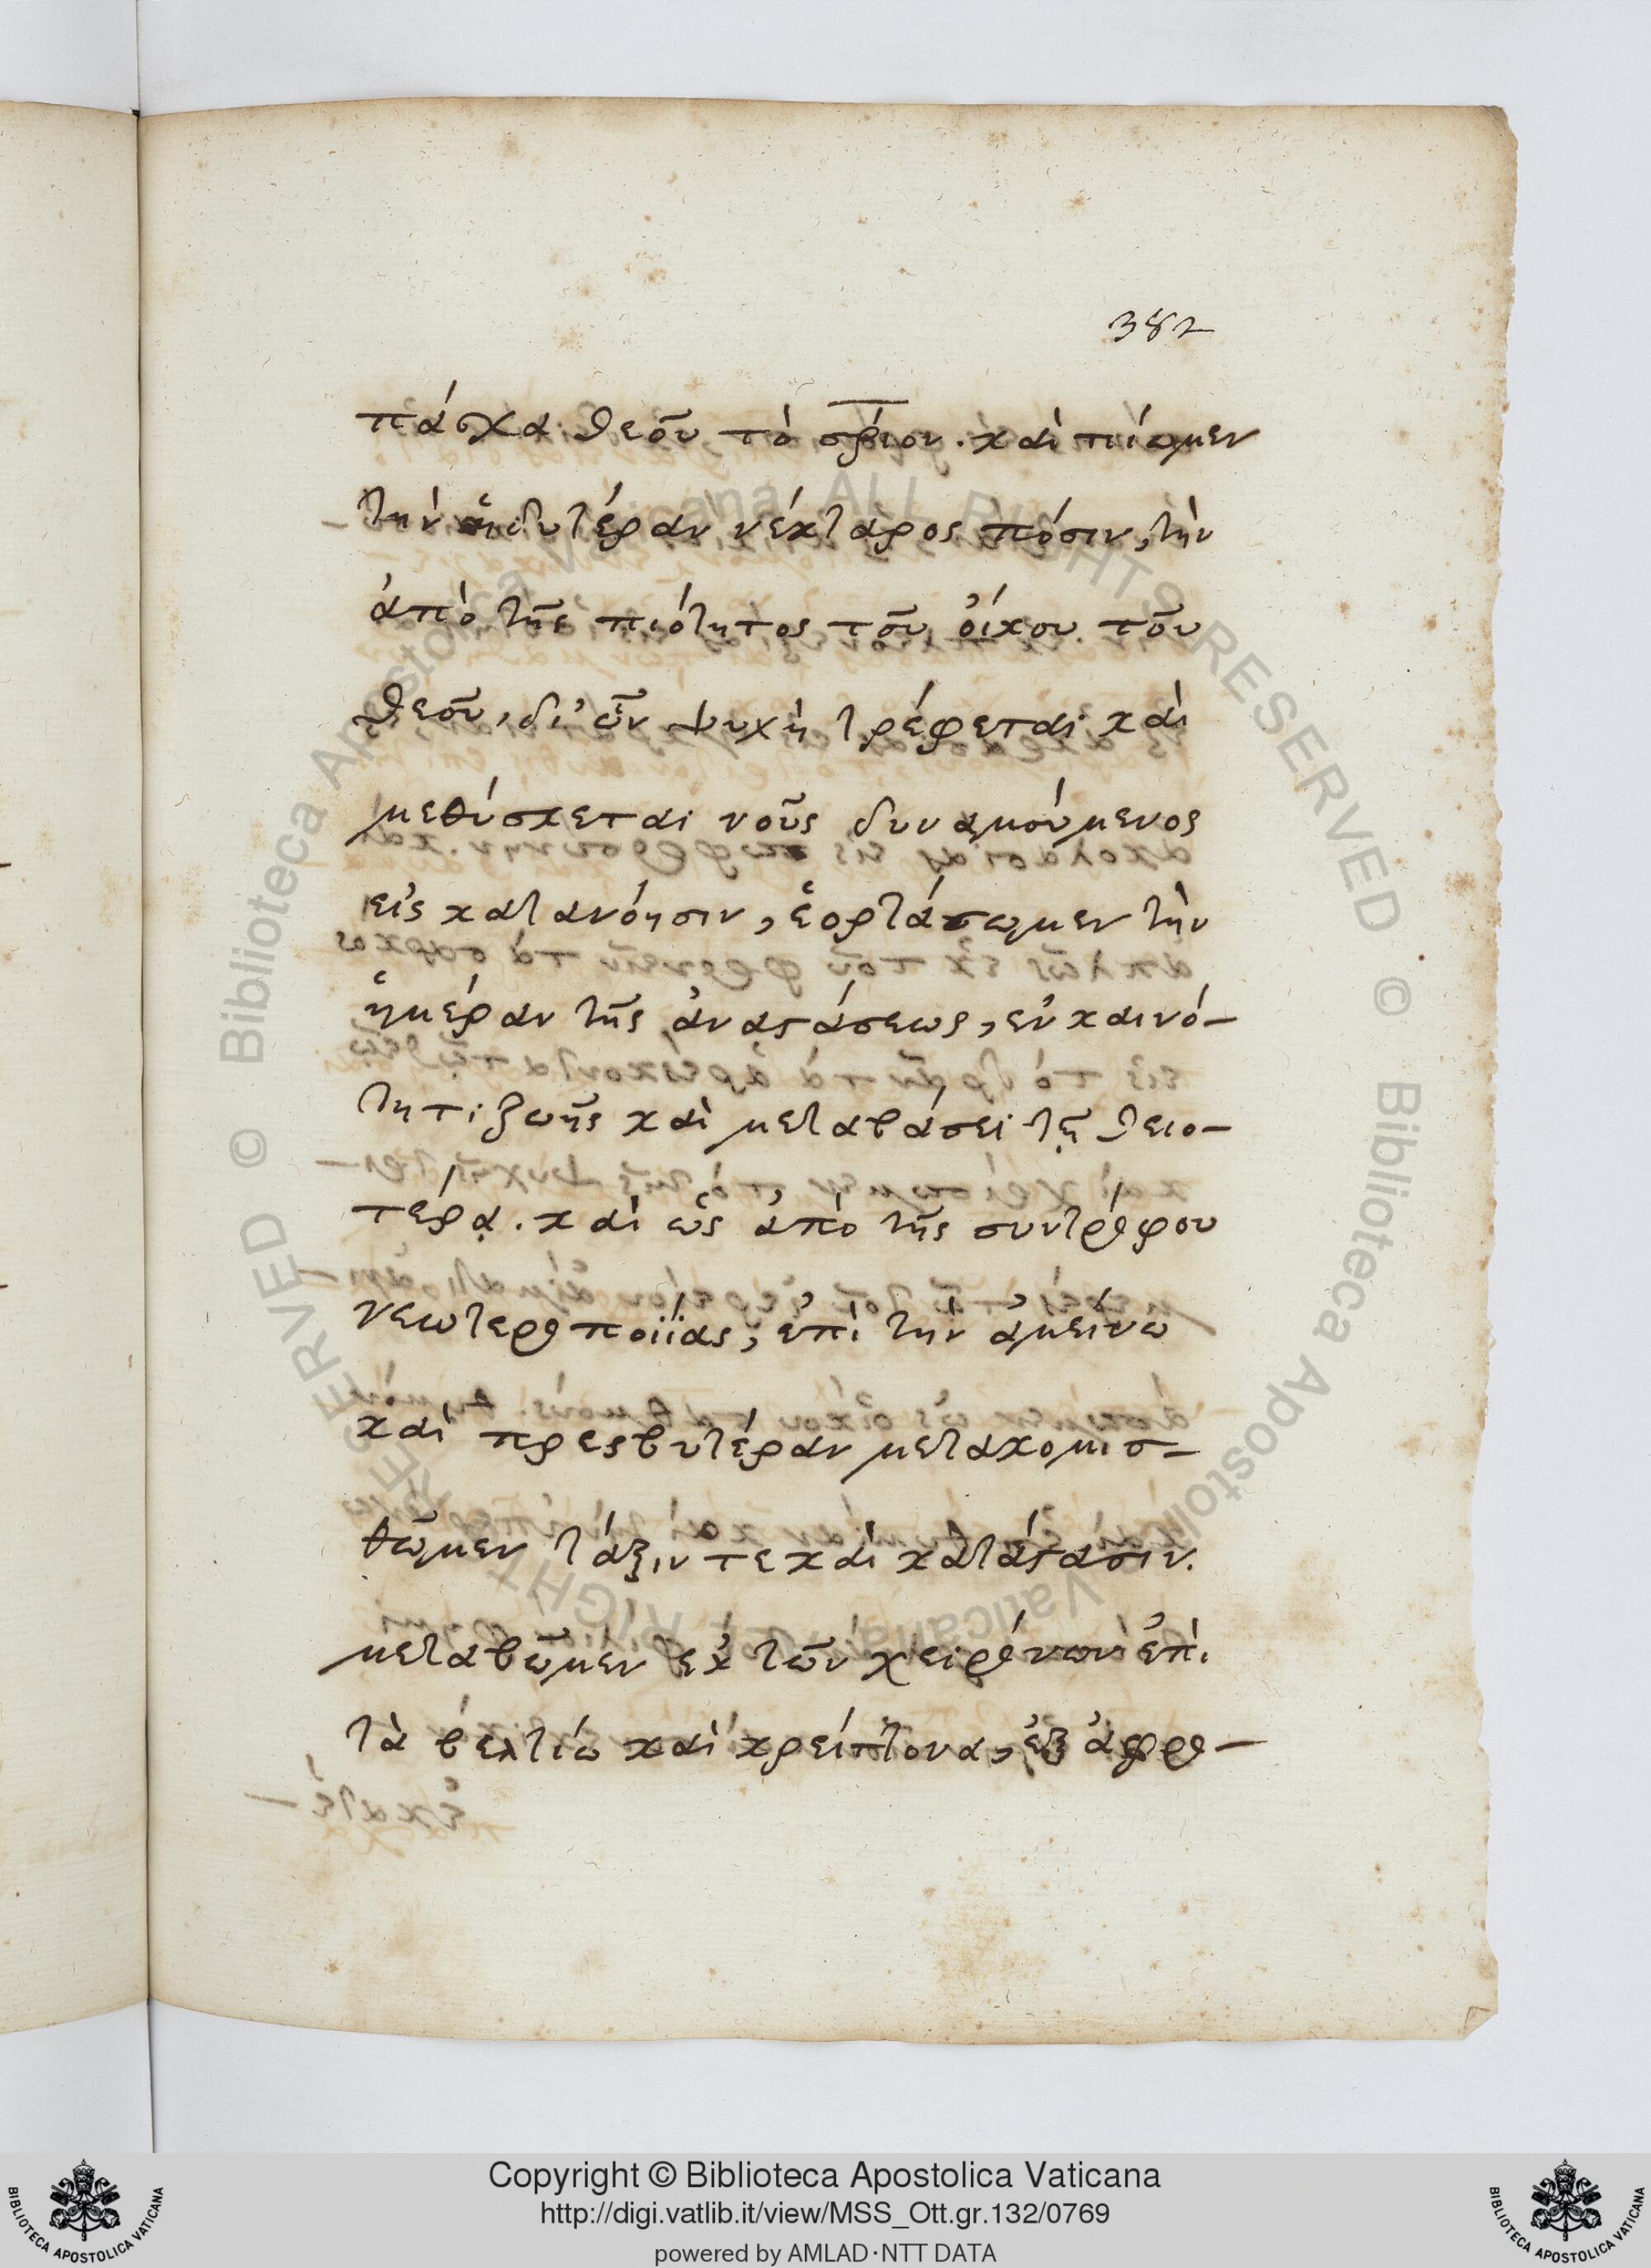 382
πάσχα θεοῦ τὸ σ̅ρ̅ιον. καὶ πίωμεν
τὴν ἡδυτέραν νέκταρος πόσιν, τὴν
ἀπὸ τῆς πιότητος τοῦ οἴκου τοῦ
θεοῦ, δι' ὧν ψυχὴ τρέφεται καὶ
μεθύσκεται νοῦς δυναμούμενος
εἰς κατανόησιν, ἑορτάσωμεν τὴν
ἡμέραν τῆς ἀναστάσεως, ἐν καινό-
τητι ζωῆς καὶ μεταβάσει τῇ θειο-
τέρᾳ. καὶ ὡς ἀπὸ τῆς συντρόφου
νεωτεροποιΐας, ἐπὶ τὴν ἀμείνω
καὶ πρεσβυτέραν μετακομισ-
θῶμεν τάξιν τε καὶ κατάστασιν.
μεταβῶμεν ἐκ τῶν χειρόνων ἐπὶ
τὰ βελτίω καὶ κρείττονα, ἐξ ἀφρο-
Copyright © Biblioteca Apostolica Vaticana
http://digi.vatlib.it/view/MSS_Ott.gr.132/0769
powered by AMLAD·NTT DATA
BIBLIOTECA APOSTOLICA VATICANA
BIBLIOTECA APOSTOLICA VATICANA